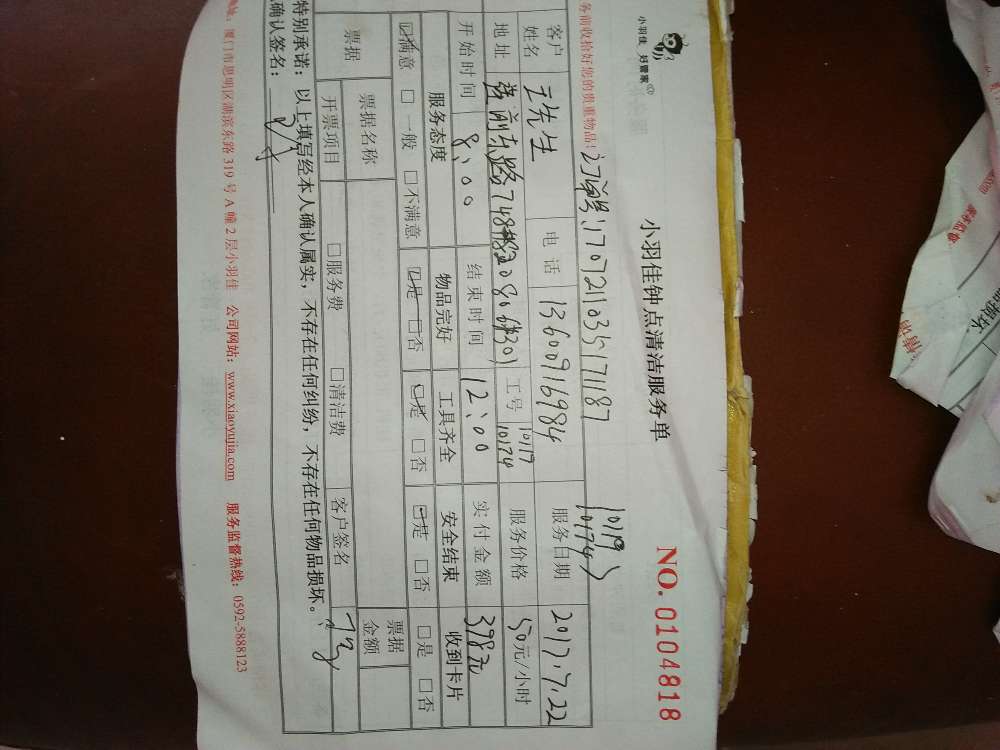 小羽佳 好管家
小羽佳钟点清洁服务单
NO. 0104818
务前收拾好您的贵重物品!
订单号:17072103517187
10119
10174
客户姓名 王先生 电话 13600916984 服务日期 2017.7.22
地址 748#-820806#301 工号 10119 10174 服务价格 50元/小时
开始时间 8:00 结束时间 12:00 实付金额 398元
服务态度 物品完好 工具齐全 安全结束 收到卡片
☑满意 □一般 □不满意 ☑是 □否 ☑是 □否 ☑是 □否 □是 □否
票据 票据名称 票据金额
开票项目 □服务费 □清洁费 客户签名
特别承诺:以上填写经本人确认属实,不存在任何纠纷,不存在任何物品损坏。
确认签名:
地址:厦门市思明区湖滨东路 319 号 A 幢 2 层小羽佳 公司网站:www.xiaoyujia.com 服务监督热线:0592-5888123